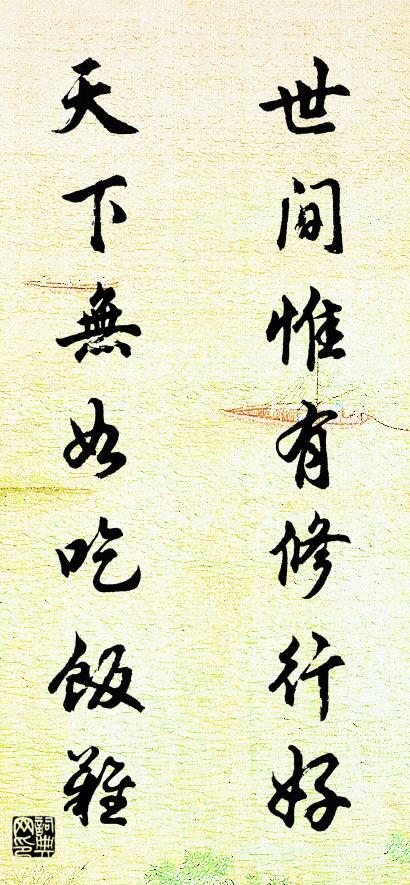 世间惟有修行好
天下無如吃飯難
詞典网印